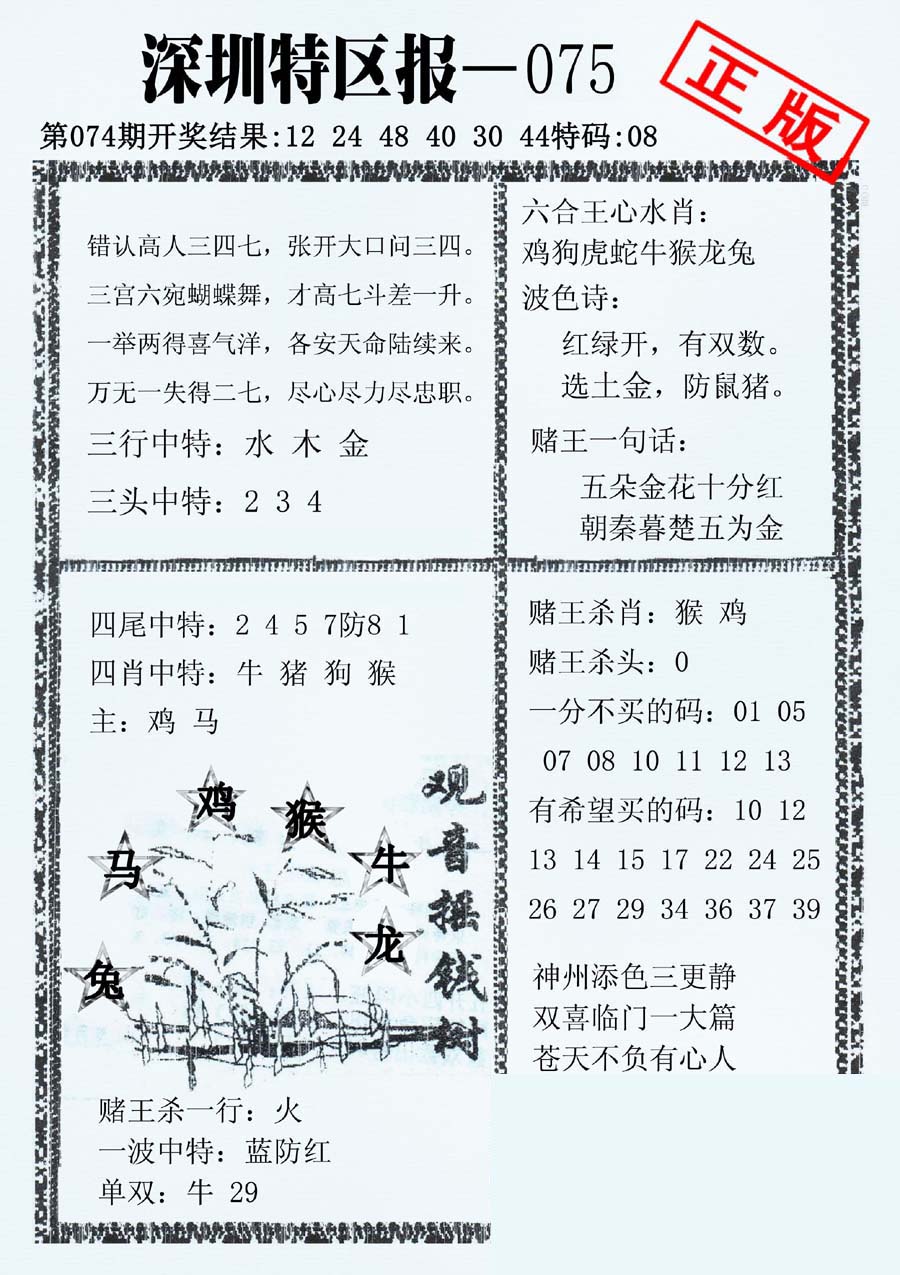 深圳特区报—075
正版
第074期开奖结果:12 24 48 40 30 44特码:08
错认高人三四七，张开大口问三四。
三宫六宛蝴蝶舞，才高七斗差一升。
一举两得喜气洋，各安天命陆续来。
万无一失得二七，尽心尽力尽忠职。
三行中特：水 木 金
三头中特：2 3 4
六合王心水肖：
鸡狗虎蛇牛猴龙兔
波色诗：
红绿开，有双数。
选土金，防鼠猪。
赌王一句话：
五朵金花十分红
朝秦暮楚五为金
四尾中特：2 4 5 7防8 1
四肖中特：牛 猪 狗 猴
主：鸡 马
鸡
猴
马
牛
龙
兔
观音摇钱树
赌王杀一行：火
一波中特：蓝防红
单双：牛 29
赌王杀肖：猴 鸡
赌王杀头：0
一分不买的码：01 05
07 08 10 11 12 13
有希望买的码：10 12
13 14 15 17 22 24 25
26 27 29 34 36 37 39
神州添色三更静
双喜临门一大篇
苍天不负有心人